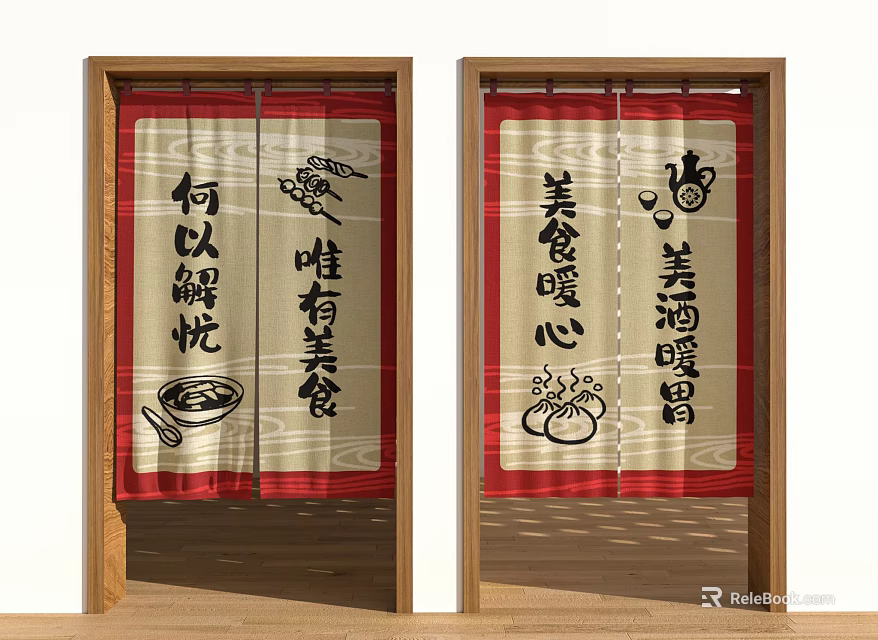 何以解忧
唯有美食
美食暖心
美酒暖胃
ReleBook.com